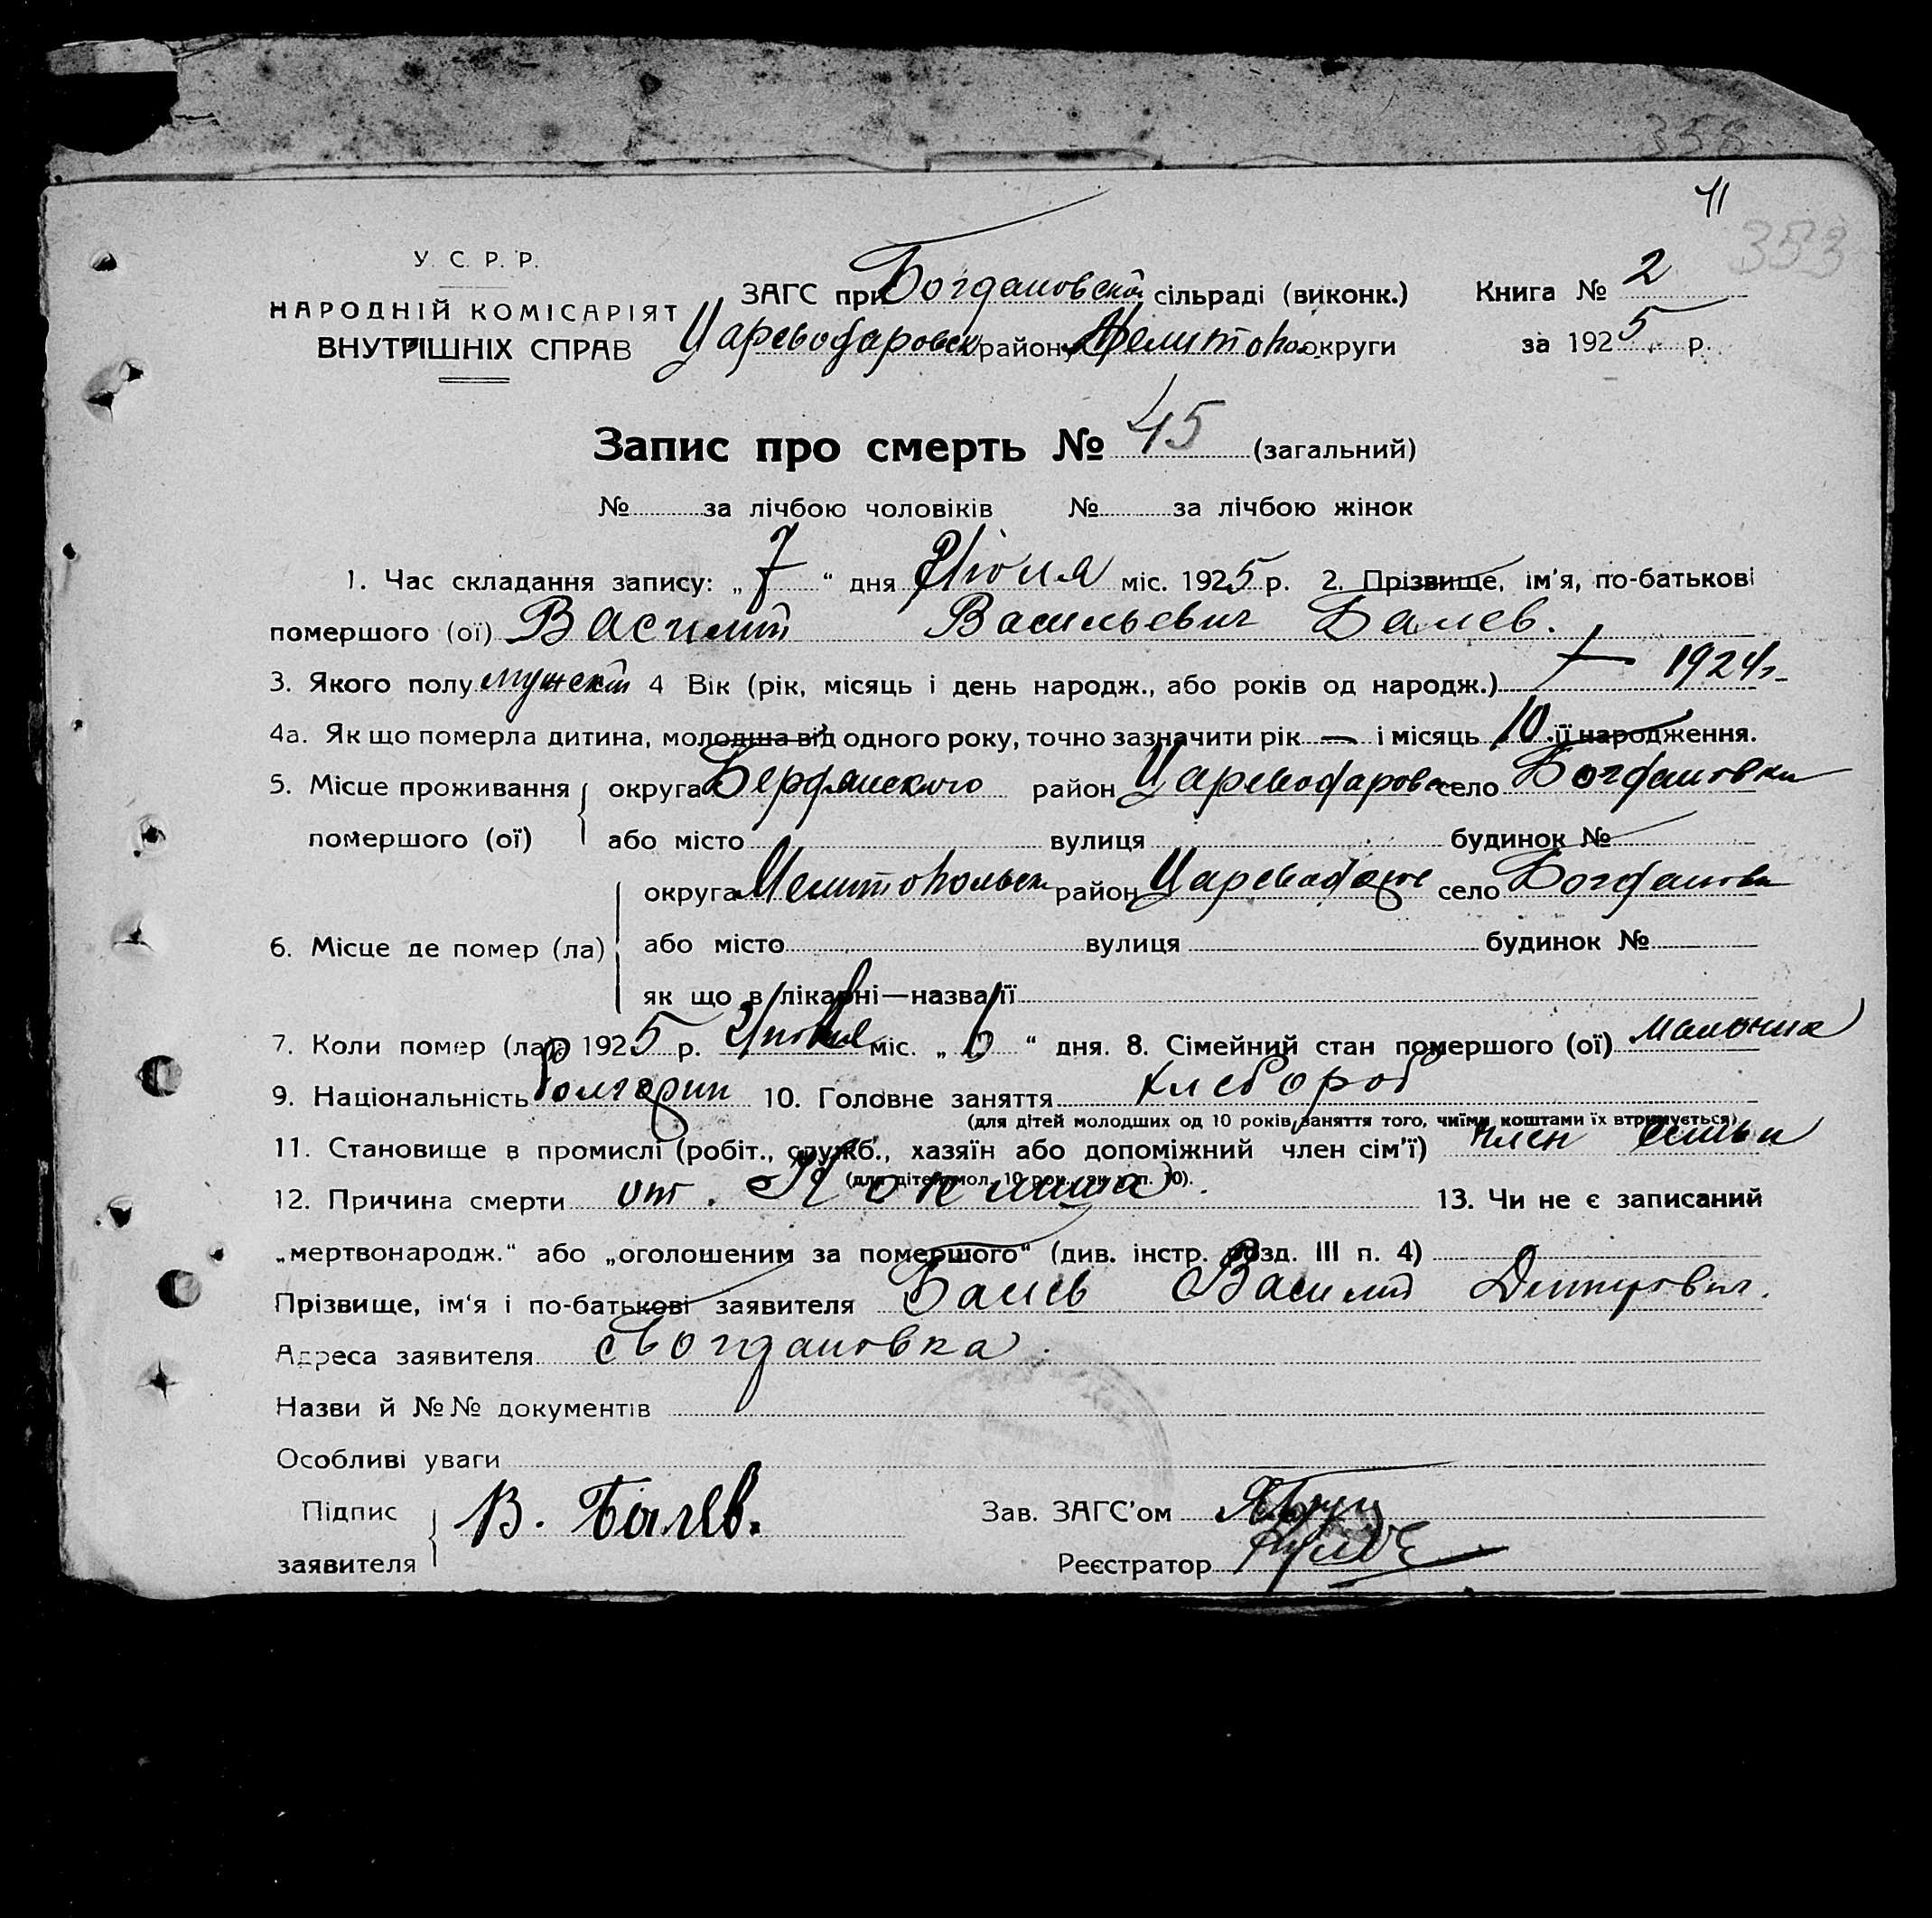 358
41
353
У. С. Р. Р.
НАРОДНІЙ КОМІСАРІЯТ
ВНУТРІШНІХ СПРАВ
ЗАГС при Богдановской сільраді (виконк.)
Цареводаровск району Мелитопол округи
Книга № 2
за 1925 р.
Запис про смерть № 45 (загальний)
№ за лічбою чоловіків № за лічбою жінок
1. Час складання запису: „7“ дня Июля міс. 1925 р. 2. Прізвище, ім'я, по-батькові
помершого (ої) Василий Васильевич Балев.
3. Якого полу мужской 4 Вік (рік, місяць і день народж., або років од народж.) 1924 г
4а. Як що померла дитина, молодша від одного року, точно зазначити рік — і місяць 10 її народження.
5. Місце проживання округа Бердянского район Цареводаровс село Богдановки
помершого (ої) або місто вулиця будинок №
округа Мелитопольск район село Богдановк
6. Місце де помер (ла) або місто вулиця будинок №
як що в лікарні—назва її
7. Коли помер (ла) 1925 р. міс. „6“ дня. 8. Сімейний стан помершого (ої)
9. Національність Болгарин 10. Головне заняття хлебороб
(для дітей молодших од 10 років, заняття того, чиїми коштами їх втримується)
11. Становище в промислі (робіт., служб., хазяїн або допоміжний член сім'ї) член семьи
(для дітей мол. 10 рок., як у п. 10).
12. Причина смерти от Коклюша. 13. Чи не є записаний
„мертвонародж.“ або „оголошеним за помершого“ (див. інстр. розд. III п. 4)
Прізвище, ім'я і по-батькові заявителя Балев Василий Дмитрович.
Адреса заявителя с Богдановка.
Назви й №№ документів
Особливі уваги
Підпис
заявителя В. Балев.
Зав. ЗАГС'ом
Реєстратор